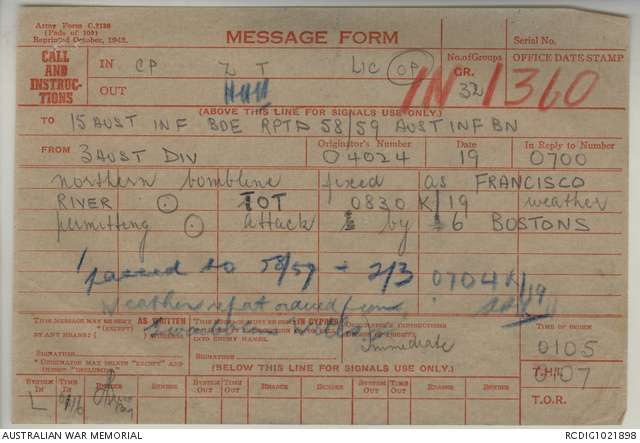 Army Form C.2136
(Pads of 100)
Reprinted October, 1942.
MESSAGE FORM
Serial No.
CALL AND INSTRUCTIONS
IN CP Z T LIC OP
No. of Groups
GR. 32
OFFICE DATE STAMP
OUT
IN 1360
(ABOVE THIS LINE FOR SIGNALS USE ONLY.)
TO 15 AUST INF BDE RPTD 58/59 AUST INF BN
FROM 3 AUST DIV
Originator's Number 04024
Date 19
In Reply to Number 0700
northern bombline fixed as FRANCISCO
RIVER TOT 0830 K/19 weather
permitting attack by 6 BOSTONS
passed to 58/59 + 2/3 0704 K/19
Weather rep at
THIS MESSAGE MAY BE SENT AS WRITTEN
BY ANY MEANS
(EXCEPT)
SIGNATURE
ORIGINATOR'S INSTRUCTIONS
Immediate
TIME OF ORIGIN
0105
* ORIGINATOR MAY DELETE "EXCEPT" AND
T.H.I.
0107
(BELOW THIS LINE FOR SIGNALS USE ONLY.)
SYSTEM IN
TIME IN
READER
SENDER
SYSTEM OUT
TIME OUT
READER
SENDER
SYSTEM OUT
TIME OUT
READER
SENDER
T.O.R.
L
AUSTRALIAN WAR MEMORIAL
RCDIG1021898